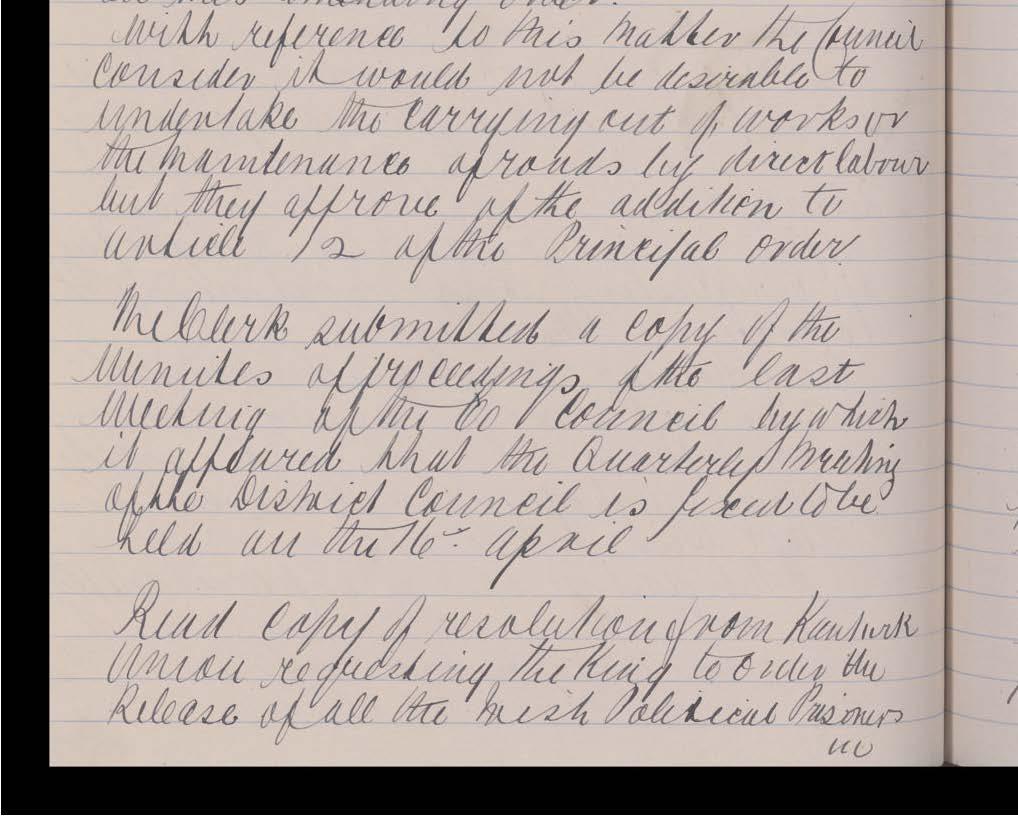 amending order.
With reference to this matter the Council
consider it would not be desirable to
undertake the carrying out of works or
the maintenance of roads by direct labour
but they approve of the addition to
article 12 of the Principal order.
The Clerk submitted a copy of the
Minutes of proceedings of the last
Meeting of the Co Council by which
it appeared that the Quarterly Meeting
of the District Council is fixed to be
held on the 16th April
Read Copy of resolution from Kanturk
Union requesting the King to order the
Release of all the Irish Political Prisoners
in